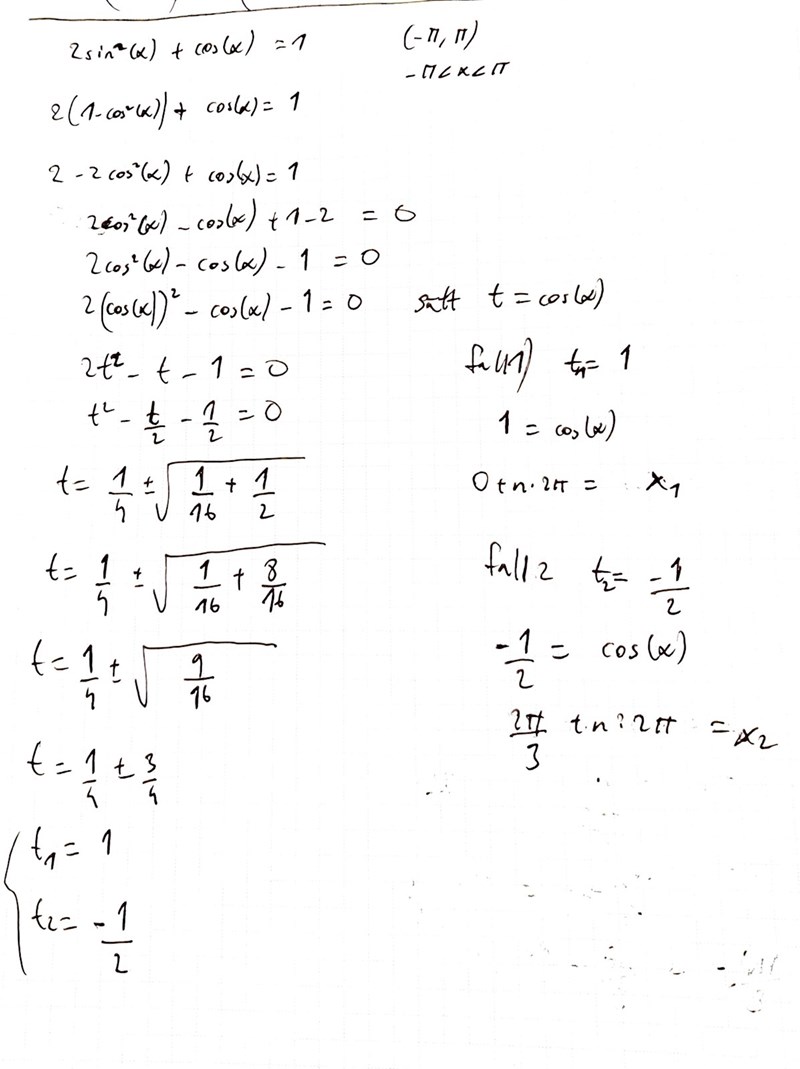 2sin²(x) + cos(x) = 1
(-π, π)
-π < x < π
2(1-cos²(x)) + cos(x) = 1
2 - 2cos²(x) + cos(x) = 1
2cos²(x) - cos(x) + 1 - 2 = 0
2cos²(x) - cos(x) - 1 = 0
2(cos(x))² - cos(x) - 1 = 0
sätt t = cos(x)
2t² - t - 1 = 0
t² - t/2 - 1/2 = 0
t = 1/4 ± √(1/16 + 1/2)
t = 1/4 ± √(1/16 + 8/16)
t = 1/4 ± √(9/16)
t = 1/4 ± 3/4
t₁ = 1
t₂ = -1/2
fall 1) t₁ = 1
1 = cos(x)
0 + n · 2π = x₁
fall 2 t₂ = -1/2
-1/2 = cos(x)
2π/3 + n · 2π = x₂